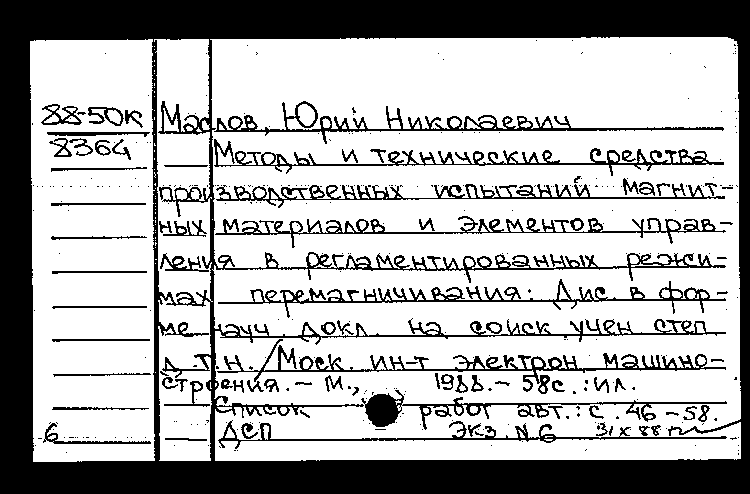 88-50К Маслов, Юрий Николаевич
8364 Методы и технические средства
производственных испытаний магнит-
ных материалов и элементов управ-
ления в регламентированных режи-
мах перемагничивания: Дис. в фор-
ме науч. докл. на соиск. учен. степ.
д.т.н. / Моск. ин-т электрон. машино-
строения. – М., 1988. – 58с.: ил.
Список работ авт.: с. 46-58.
6 ДСП Экз. N 6 31 X 88